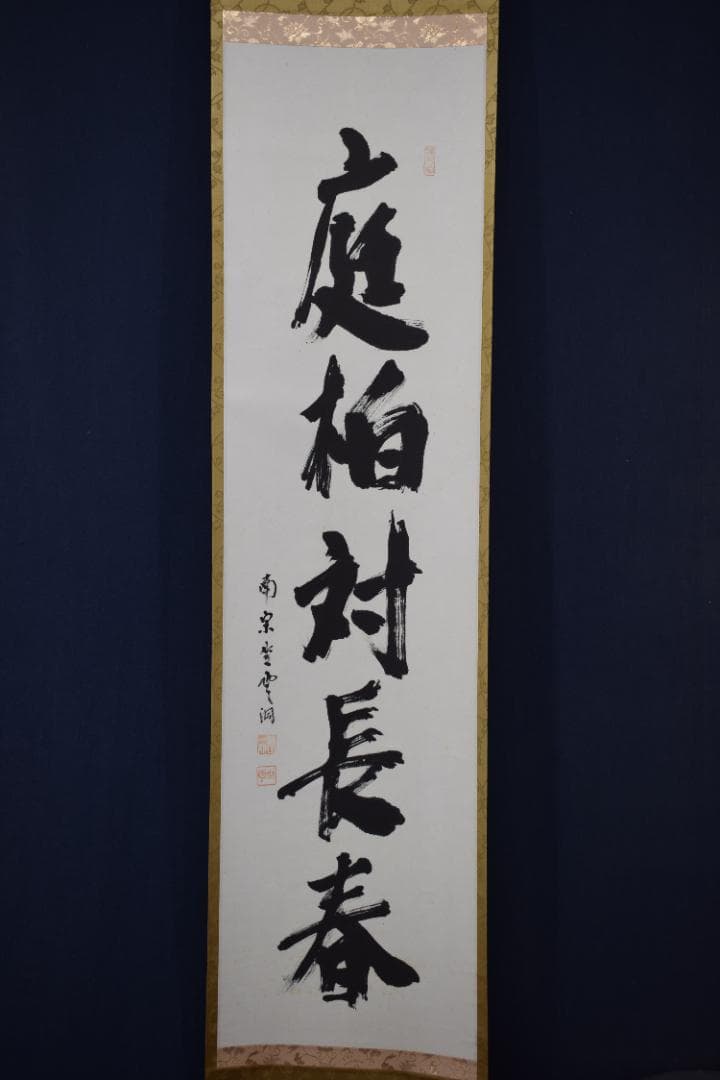 庭柏対長春
南宗尝雲洞